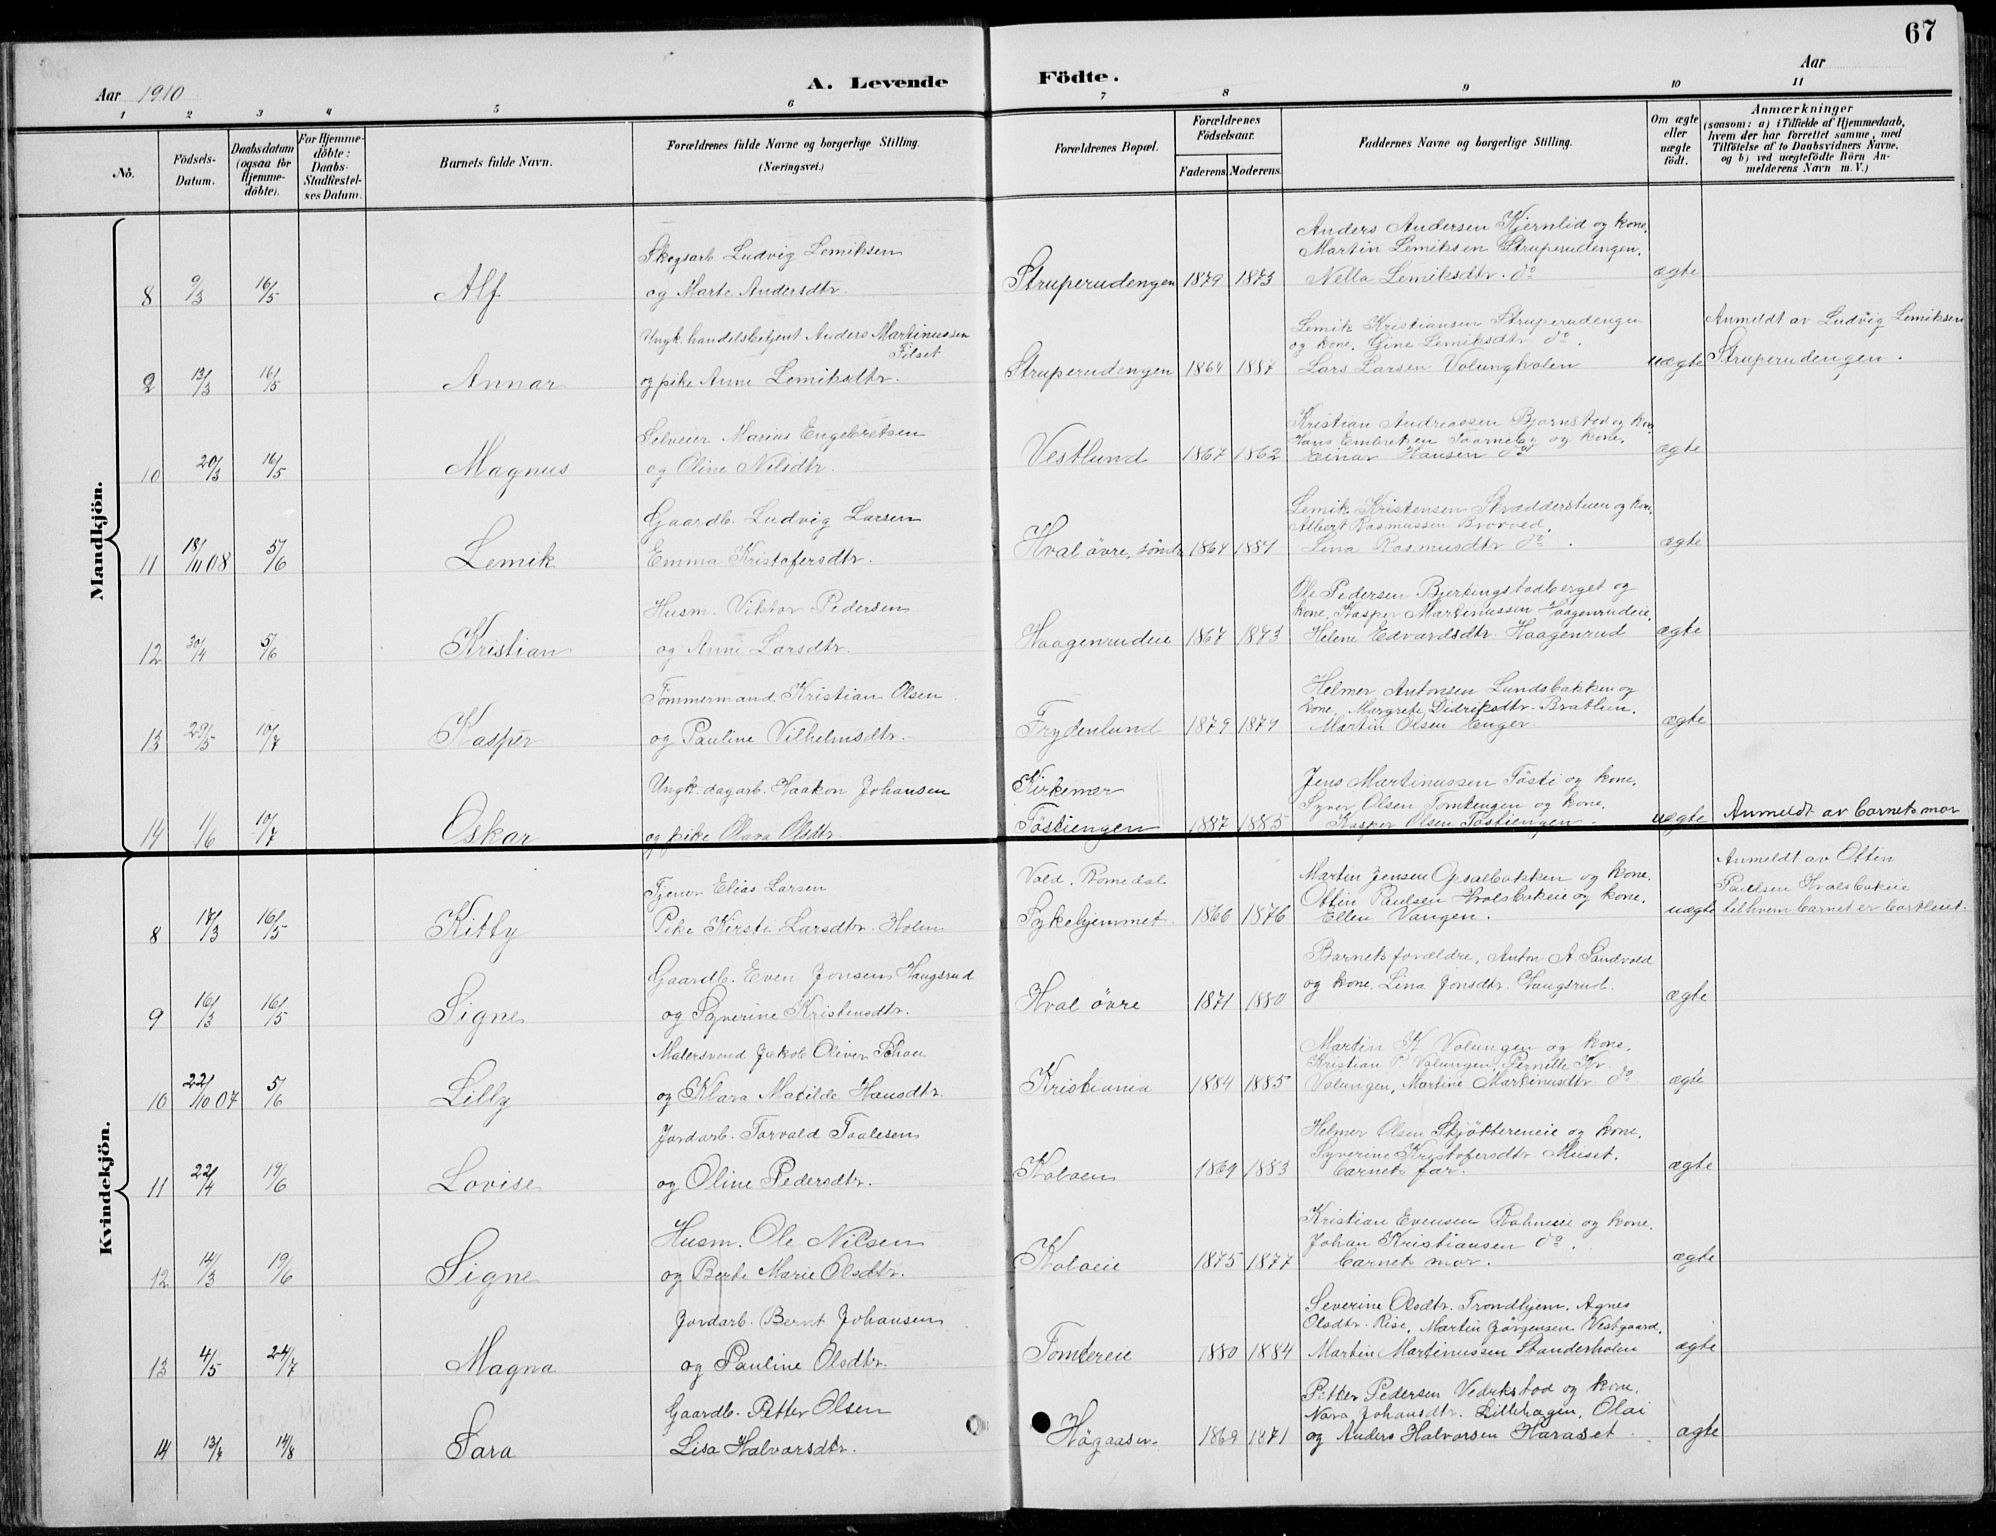 67
Aar 1910
A. Levende Födte.
Aar
1 2 3 4 5 6 7 8 9 10 11
No.
Födsels-Datum.
Daabsdatum (ogsaa for Hjemmedöbte).
For Hjemmedöbte: Daabs-Stadfæstelses Datum.
Barnets fulde Navn.
Forældrenes fulde Navne og borgerlige Stilling.
(Næringsvei.)
Forældrenes Bopæl.
Forældrenes Födselsaar.
Faderens. Moderens.
Faddernes Navne og borgerlige Stilling.
Om ægte eller uægte födt.
Anmærkninger
(saasom: a) i Tilfælde af Hjemmedaab,
hvem der har forrettet samme, med
Tilföielse af to Daabsvidners Navne,
og b) ved uægtefödte Börn An-
melderens Navn m. V.)
Mandkjön.
Skogsarb. Ludvig Lemiksen
og Marte Andersdtr.
8 9/3 16/5 Alf Struperudengen 1879 1873
Anders Andersen Kjernlid og kone.
Martin Lemiksen Struperudengen.
Nella Lemiksdtr. do
ægte
Ungk. handelsbetjent Anders Martinussen
Tilset
og pike Anne Lemiksdtr.
9 13/3 16/5 Annar Struperudengen 1864 1887
Lemik Kristiansen Struperudengen
og kone, Gine Lemiksdtr do.
Lars Larsen Volungholen
uægte
Anmeldt av Ludvig Lemiksen
Struperudengen.
Selveier Marius Engebretsen
og Oline Nilsdtr.
10 20/3 16/5 Magnus Vestlund 1867 1862
Kristian Andreassen Bjørnstad og kone
Hans Embretsen Taarneby og kone.
Einar Hansen do
ægte
Gaardb. Ludvig Larsen
Emma Kristofersdtr.
11 18/11 08 5/6 Lemik Hval övre, söndre 1864 1881
Lemik Kristensen Skrædderstuen og kone.
Albert Rasmussen Brovved.
Lina Rasmusdtr do.
ægte
Husm. Viktor Pedersen
og Anne Larsdtr.
12 30/4 5/6 Kristian Haagenrudeie 1867 1873
Ole Pedersen Bjertingstadberget og
kone, Kasper Martinussen Haagenrudeie,
Helene Edvardsdtr. Haagenrud
ægte
Tömmermand Kristian Olsen
og Pauline Vilhelmsdtr.
13 29/5 10/7 Kasper Frydenlund 1879 1879
Helmer Antonsen Lundsbakken og
kone, Margrete Didriksdtr. Bratlien.
Martin Olsen Enger
ægte
Ungk. dagarb. Haakon Johansen
og pike Olava Olsdtr.
14 1/6 10/7 Oskar
Kirkemær
Töstiengen 1887 1885
Jens Martinussen Tösti og kone.
Syver Olsen Tomtengen og kone.
Kasper Olsen Töstiengen.
uægte
Anmeldt av barnets mor
Kvindekjön.
Tjener Elias Larsen
Pike Kirsti Larsdtr. Holm
8 17/3 16/5 Kitty
Vold, Romedal
Sykehjemmet 1866 1876
Martin Jensen Opsalbakken og kone.
Ottin Paulsen Hvalsbakeie og kone.
Ellen Vangen.
uægte
Anmeldt av Otten
Paulsen Hvalsbakeie
til hvem barnet er bortleiet.
Gaardb. Even Jonsen Haugsrud
og Syverine Kristensdtr.
9 16/3 16/5 Signe Hval övre 1871 1880
Barnets forældre, Anton A. Sandvold
og kone, Lina Jonsdtr. Haugsrud.
ægte
Malersvend Jakob Oliver Schau
og Klara Matilde Hansdtr.
10 22/10 07 5/6 Lilly Kristiania 1884 1885
Martin K Volungen og kone.
Kristian P. Volungen, Pernille Kr
Volungen, Martine Martinusdtr. do
ægte
Jordarb. Torvald Taalesen
og Oline Pedersdtr.
11 22/4 19/6 Lovise Koloen 1869 1883
Helmer Olsen Skjöttereneie og kone.
Syverine Kristofersdtr Miset.
barnets far.
ægte
Husm. Ole Nilsen
og Berte Marie Olsdtr.
12 14/3 19/6 Signe Koloeie 1875 1877
Kristian Evensen Rohneie og kone.
Johan Kristiansen do.
barnets mor.
ægte
Jordarb. Bernt Johansen
og Pauline Olsdtr.
13 4/5 24/7 Magna Tomtereie 1880 1884
Severine Olsdtr. Trondhjem, Agnes
Olsdtr. Rise, Martin Jörgensen Vestgaard.
Martin Martinussen Standerholen
ægte
Gaardb. Petter Olsen
Lisa Halvorsdtr.
14 13/7 14/8 Sara Högaasen 1869 1871
Petter Pedersen Vedikstad og kone.
Nora Johansdtr. Lillehagen, Olai
og Anders Halvorsen Haraset.
ægte